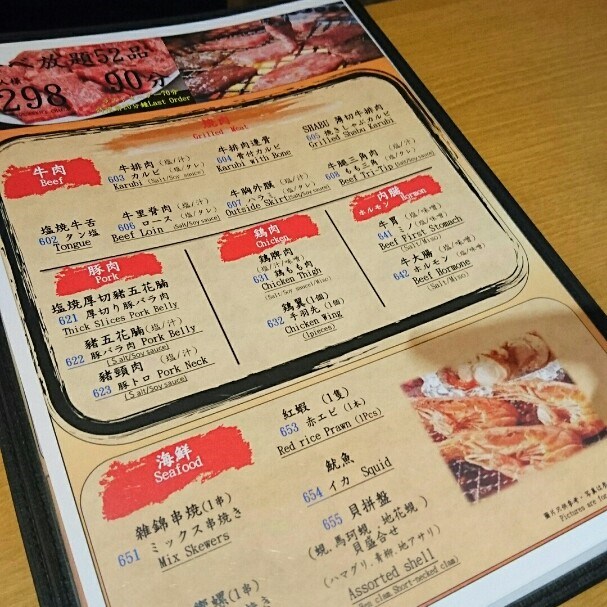 放題52品
298 90分
Last Order
Grilled Meat
牛肉
Beef
牛排肉(塩/汁)
603 カルビ(塩/タレ)
Karubi (Salt/Soy sauce)
牛排肉連骨
604 骨付カルビ
Karubi With Bone
SHABU 薄切牛排肉
605 焼きしゃぶカルビ
Grilled Shabu Karubi
塩焼牛舌
602 タン塩
Tongue
牛里脊肉(塩/汁)
606 ロース(塩/タレ)
Beef Loin (Salt/Soy sauce)
牛胸外膜(塩/汁)
607 ハラミ(塩/タレ)
Outside Skirt(Salt/Soy sauce)
牛腿三角肉(塩/汁)
608 もも三角(塩/タレ)
Beef Tri-Tip(Salt/Soy sauce)
豚肉
Pork
塩焼厚切豬五花腩
621 厚切り豚バラ肉
Thick Slices Pork Belly
豬五花腩(塩/汁)
622 豚バラ肉(塩/タレ)
Pork Belly
(Salt/Soy sauce)
豬頸肉(塩/汁)
623 豚トロ(塩/タレ)
Pork Neck
(Salt/Soy sauce)
鶏肉
Chicken
鶏脾肉
(塩/汁/味噌)
631 鶏もも肉
(塩/タレ/味噌)
Chicken Thigh
(Salt/Soy sauce/Miso)
鶏翼(1個)
632 手羽先(1個)
Chicken Wing
(1pieces)
内臓
ホルモン Hormon
牛胃(塩/味噌)
641 ミノ(塩/味噌)
Beef First Stomach
(Salt/Miso)
牛大腸(塩/味噌)
642 ホルモン(塩/味噌)
Beef Hormone
(Salt/Miso)
海鮮
Seafood
雜錦串焼(1串)
651 ミックス串焼き
Mix Skewers
紅蝦(1隻)
653 赤エビ(1本)
Red rice Prawn (1Pcs)
魷魚
654 イカ Squid
655 貝拼盤
(蜆、馬珂蜆、地花蜆)
貝盛合せ
(ハマグリ、青柳、地アサリ)
Assorted shell
clam、Short-necked clam)
螺(1串)
Pictures are for